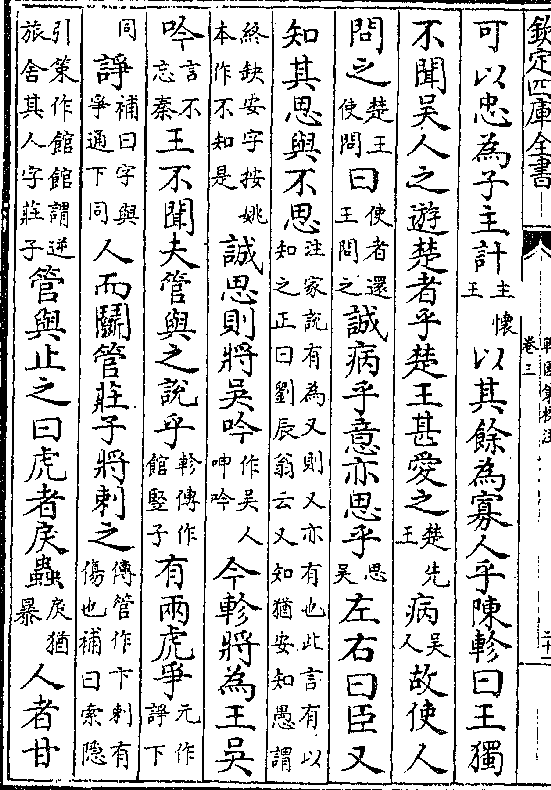 欽定四庫全書
卷三
可以忠為子主計主懷王以其餘為寡人乎陳軫曰王獨
不聞吳人之遊楚者乎楚王甚愛之楚先王病吳人故使人
問之楚王使問曰使者還王問之誠病乎意亦思乎思吳左右曰臣又
知其思與不思注家說有為又則又亦有也此言有以知之正曰劉辰翁云又知猶安知愚謂
終缺安字按姚本作不知是誠思則將吳吟作吳人呻吟今軫將為王吳
吟言不忘秦王不聞夫管與之說乎軫傳作館豎子有兩虎爭元作諍下
同諍補曰字與爭通下同人而鬭管莊子將刺之傳管作卞刺有傷也補曰索隱
引策作館館謂逆旅舍其人字莊子管與止之曰虎者戾蟲戾猶暴人者甘